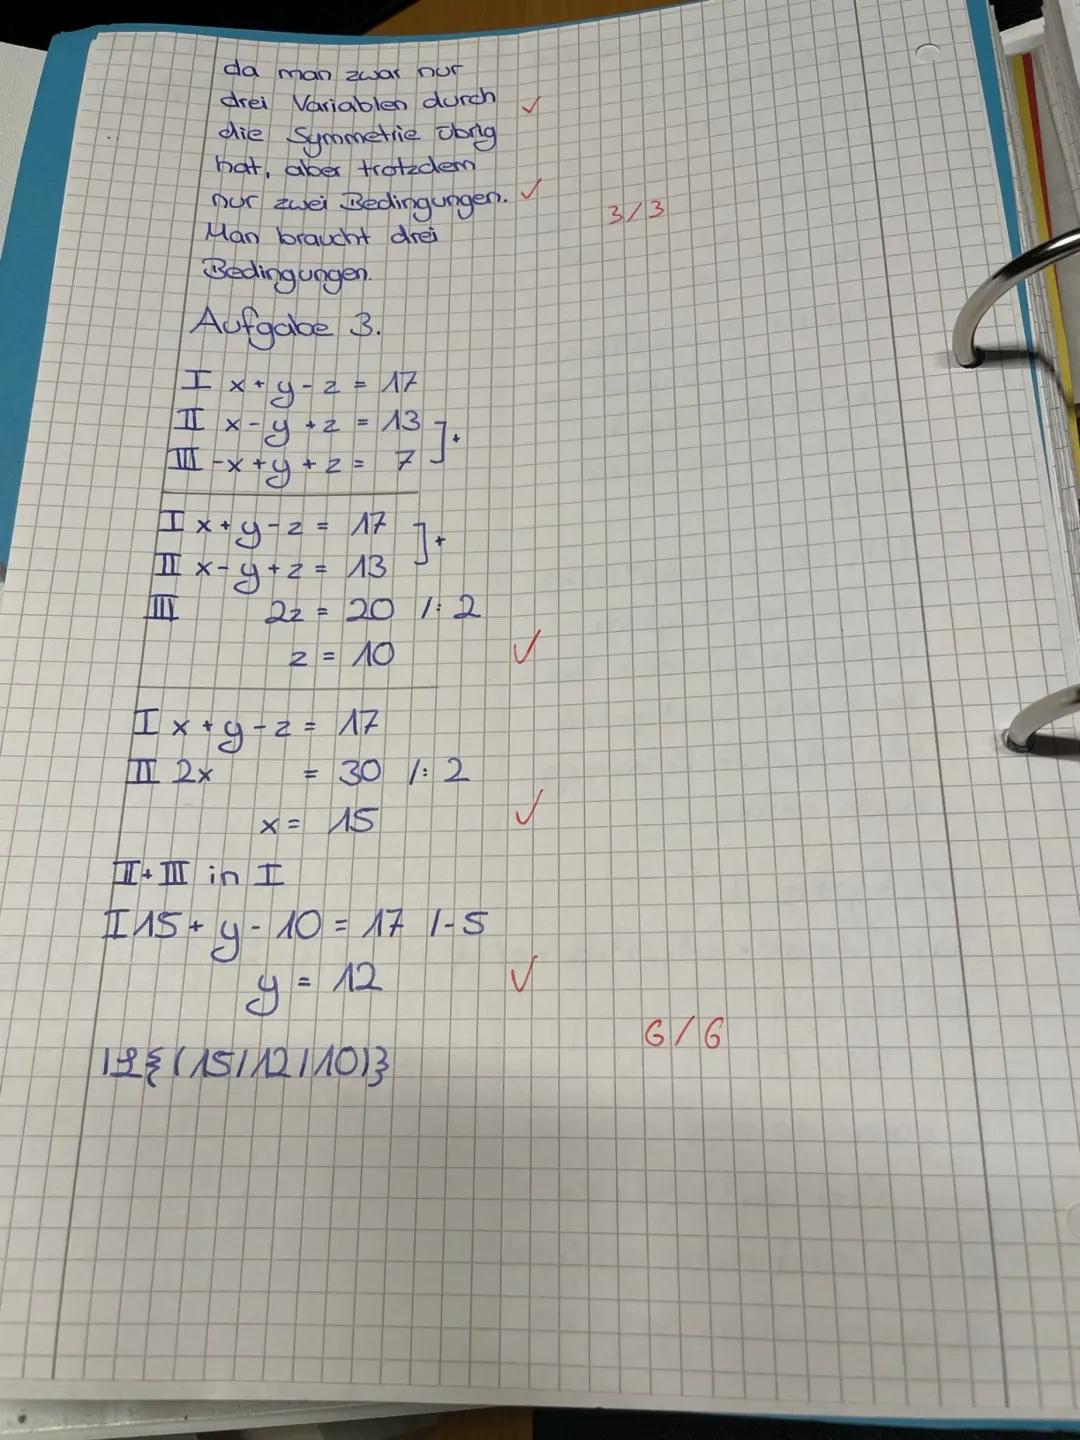 da man zwar nur
drei Variablen durch ✓
die Symmetrie übrig
hat, aber trotzdem
nur zwei Bedingungen. ✓
3/3
Man braucht drei
Bedingungen.
Aufgabe 3.
I x+y-z = 17
II x-y+z = 13 ]+
III -x+y+z = 7
I x+y-z = 17 ]+
II x-y+z = 13
III 2z = 20 /: 2
z = 10 ✓
I x+y-z = 17
II 2x = 30 /: 2
x = 15 ✓
II+III in I
I 15+y-10 = 17 /-5
y = 12 ✓
6/6
𝕃{(15/12/10)}